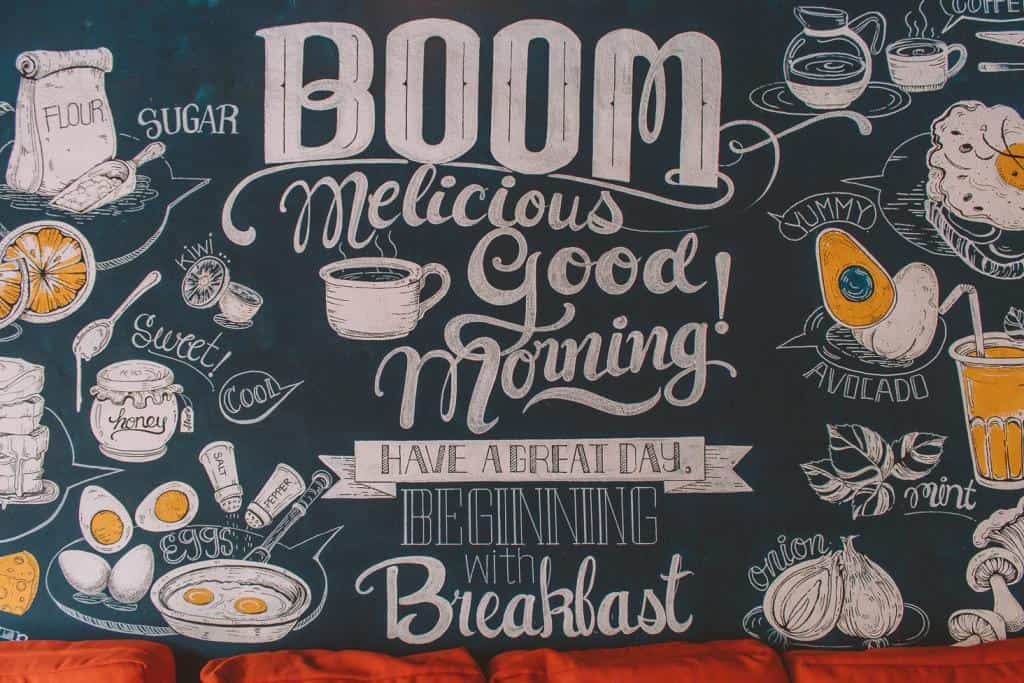 BOOM
Melicious
Good
Morning!
HAVE A GREAT DAY,
BEGINNING
with
Breakfast
FLOUR
SUGAR
KIWI
Sweet!
COOL
honey
SALT
PEPPER
EGGS
YUMMY
AVOCADO
mint
onion